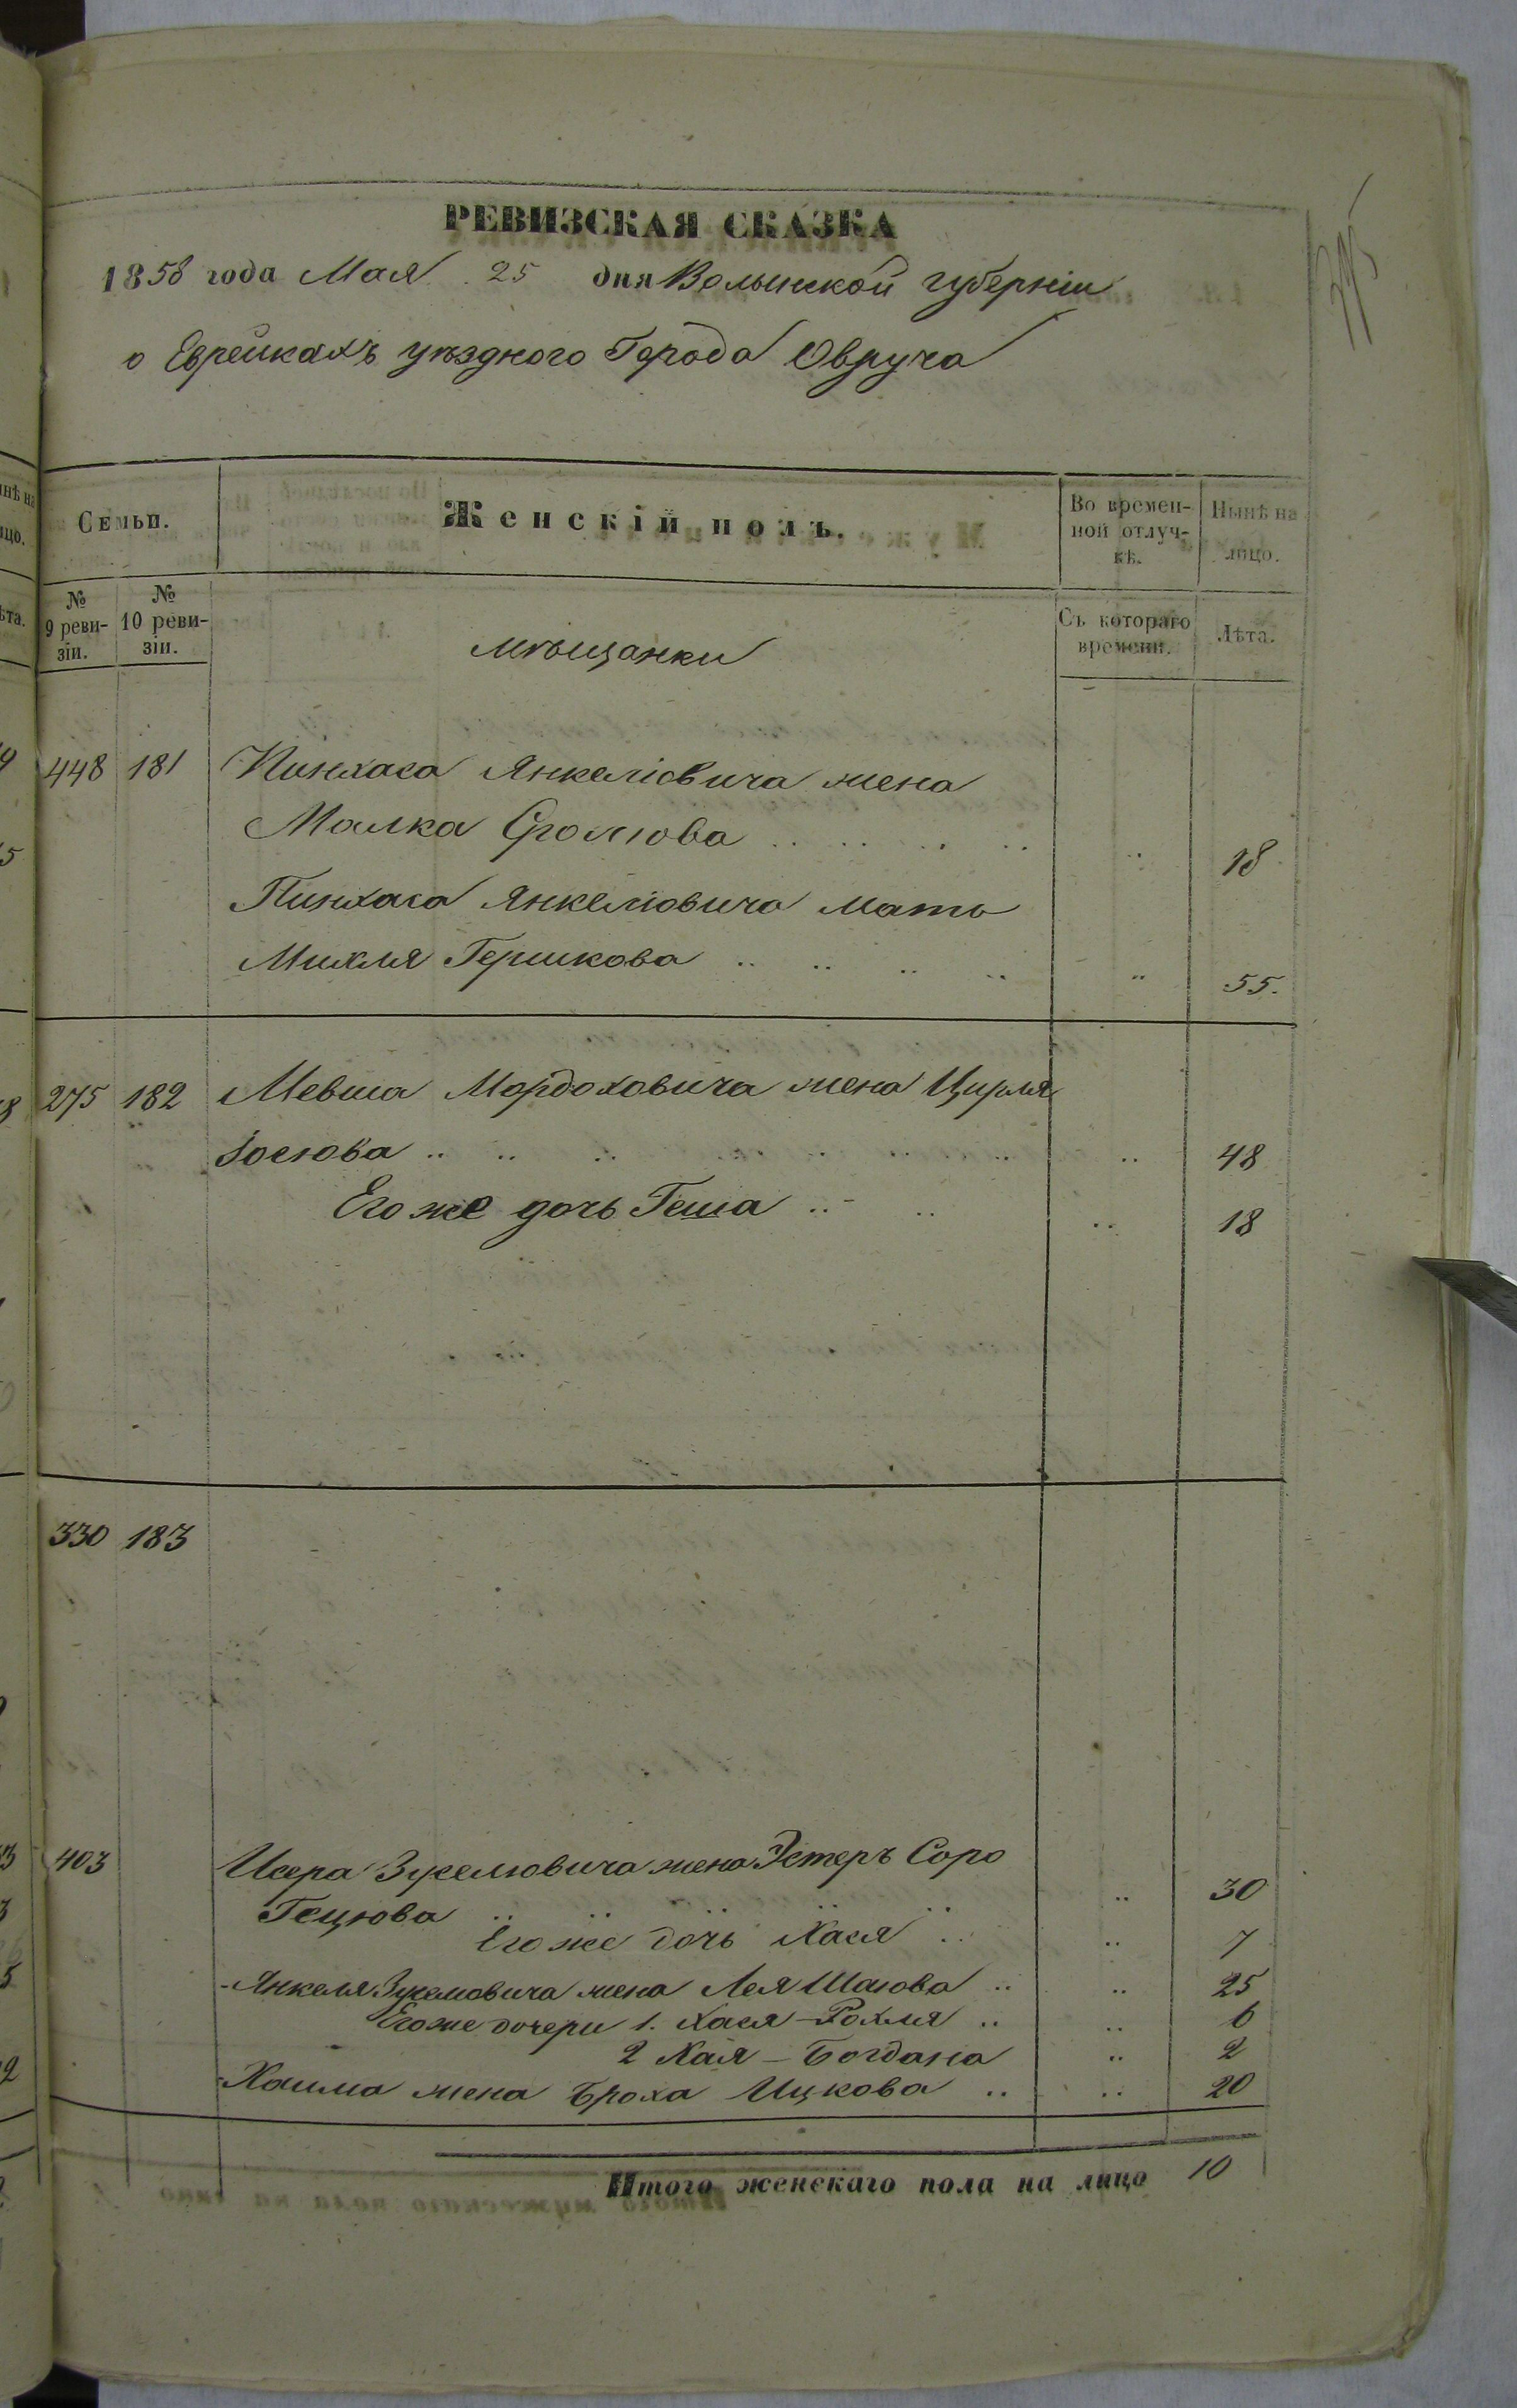 РЕВИЗСКАЯ СКАЗКА
1858 года Мая 25 дня Волынской губерніи
о Еврейкахъ уѣзднаго Города Овруча
Семьи.
Женскій полъ.
Во времен-
ной отлуч-
кѣ.
Нынѣ на
лицо.
№
9 реви-
зіи.
№
10 реви-
зіи.
Мѣщанки
Съ котораго
времени.
Лѣта.
448 181 Пинхаса Янкеліовича жена
Малка Сроліова .. .. .. .. .. 18
Пинхаса Янкеліовича мать
Михля Гершкова .. .. .. .. .. 55.
275 182 Мевша Мордоховича жена Цирля
Іосіова .. .. .. .. .. .. 48
Его же дочь Геша .. .. .. 18
330 183
403 Исера Зуселіовича жена Эстеръ Сора
Геціова .. .. .. .. 30
Его же дочь Хася .. .. 7
Янкеля Зуселіовича жена Лея Шаіова .. .. 25
Его же дочери 1. Хася-Рохля .. .. 6
2 Хая-Богдана .. 2
Хаима жена Броха Ицкова .. .. 20
Итого женскаго пола на лицо 10